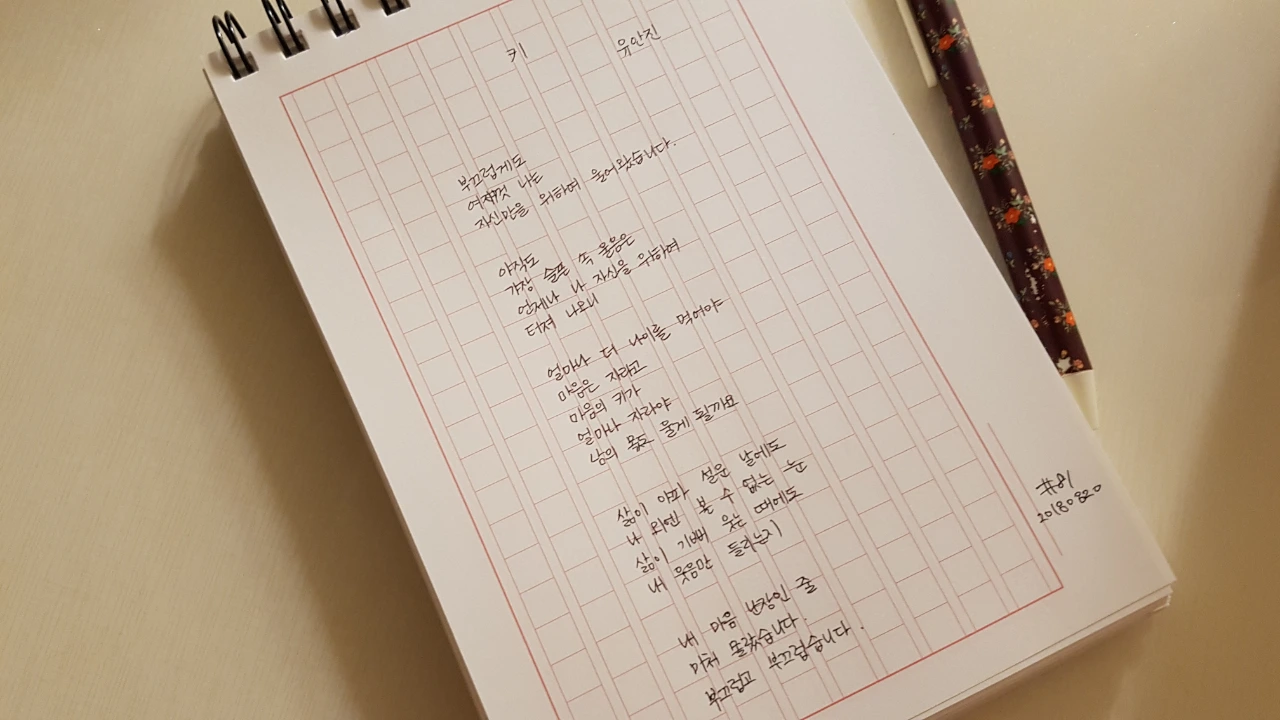 키 유안진
부끄럽게도
여지껏 나는
자신만을 위하여 울어왔습니다.
아직도
가장 슬픈 속 울음은
언제나 나 자신을 위하여
터져 나오니
얼마나 더 나이를 먹어야
마음은 자라고
마음의 키가
얼마나 자라야
남의 몫도 울게 될까요
삶이 아파 설운 날에도
나 외엔 볼 수 없는 눈
삶이 기뻐 웃는 때에도
내 웃음만 들리는지
내 마음 난장인 줄
미처 몰랐습니다
부끄럽고 부끄럽습니다.
#81
20180820